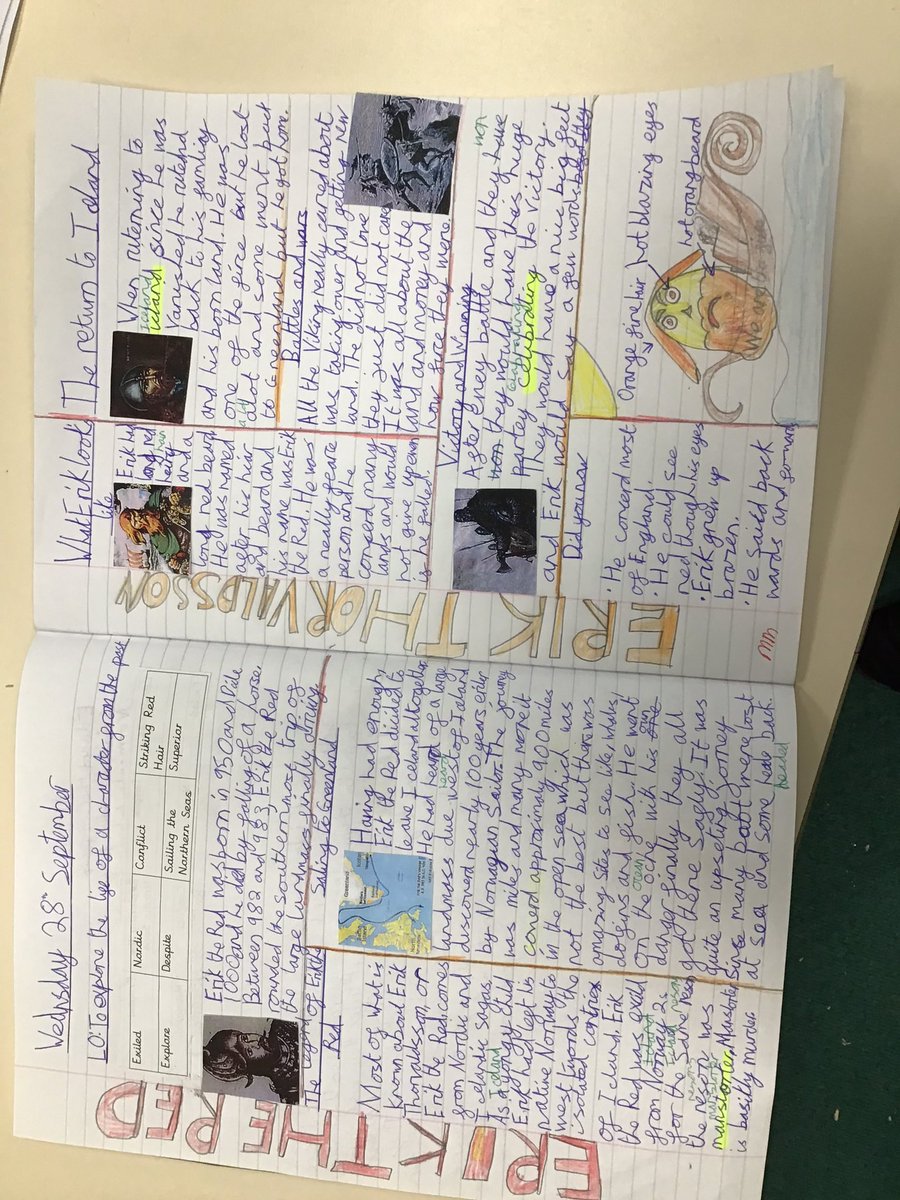 Wednsday 28th September
LO: To explore the life of a character from the past
Exiled Nordic Conflict Striking Red Hair
Explore Despite Sailing the Northern Seas Superior
ERIK THE RED
Erik the Red was born in 950 and Dide
1000 and he did by falling of a horse.
Between 982 and 983, Erik the Red
rounded the southon most top of
the large
The legond of Erik the
Red
Most of what is
known about Erik
Thorvaldsson, or
Erik the Red comes
from Nordic and
Icelandic sagas.
As a young child
Erik had left is
native Norway to
west fwords the
isolated contries
of Iclund. Erik
Icland
the Red was exild
from Norway
for the Same
the reson was
reason
manslorter. Manslorter
is basicly murder.
Sailing to Greenland
Having had enough
Erik the Red dicided to
leave Iceland altogether.
He had hearn of a large
heard
landmass due west of Iceland
discoverd nearly 100 years erlier
by Norwegun Sailor. The journy
was miles and many more it
coverd approximatly 900 mids
in the open sea wjid was
not the best but ther was
amazing sites to see like, whales
dolfins and fish. He went
on the ocine with his
ocean
danger finally they all
got there Safely. It was
quite an upseting Journey
Since many boat emers lost
at sea and some head back.
headed
ERIK THORVALDSSON
What Erik look
like
Erik hy
hair
and a
long red beard
He was named
after his hair
and beard and
his name was Erik
the Red. He was
a really feare
person and he
conserd many
lands and would
not give up even
is he failed
The return to Iceland
When retorning to
Iceland
Iceland since he was
Vanished he ruterd
back to his family
and is born land. He was
one of the first but he lost
a lot and some ment back
to Greenland but he got from.
Battles and wars
All the Viking really cared about
was taking over and geting new
land. The did not love
they just did not care
It was all about the
land and money and
how fearce they were.
Victory and Winning
After every battle and they have
won they would have this huge
won
partey celabrating the Victory.
celebrating
They would have a nice big feast
and Erik would say a few words
Did you no:
• He conserd most
of England.
• He could see
red thoug his eyes
• Erik grew up
brazen.
• He Saild back
wards and forward
Orange fire hair
hot blazing eyes
hot orang beard